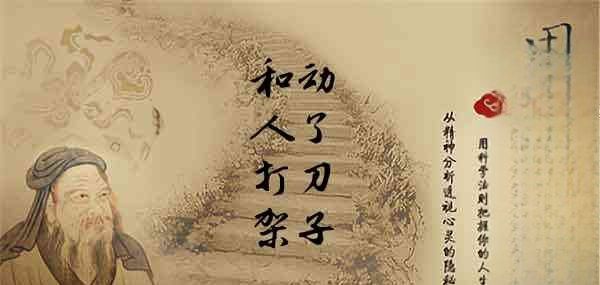 和人打架
动了刀子
从精神分析透视心灵的隐秘
用科学法则把握你的人生